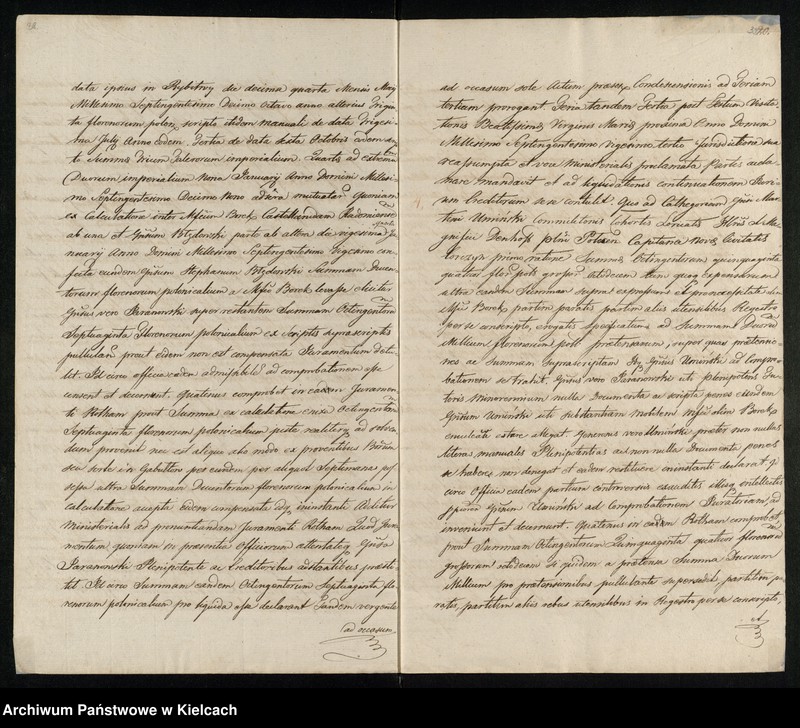 data ipsius in Rybitwy die decima quarta Mensis May
Millesimo Septingentesimo Decimo octavo anno alterius Trigin
ta florenorum polon. scripto itidem manuali de data Trigesi
ma July Anno eodem Tertia de data Sexta Octobris eodem an
no Summa Tricum Talerorum imperialium Quarto ad extremum
Ducrum imperialium Nona January Anno Domini Millesi
mo Septingentesimo Decimo Nono mutuatar Quoniam
ex Calculatione inter Mfcum Borek Castellanidam Radomiensem
ab una et Gnsum Błędowski parte ab altera die vigesima Ja
nuary Anno Domini Millesimo Septingentesimo Vigesimo con
fecta eundem Gnsum Stephanum Błędowski Summam Ducen
torum florenorum polonicalium a Mfco Borek levasse elicitur
Gnsus vero Taranowski superrestantem Summam Octingentorum
Septuaginta florenorum polonicalium ex scriptis suprascriptis
pullulan prout eidem non est compensata Juramentum detu
lit. Id circo officia eadem admissibile ad comprobationem esse
censent et decernunt. Quatenus comprobet in eadem Juramen
ti Rotham prout Summa ex calculatione Octingentorum
Septuaginta florenorum polonicalium juste realiter ad solven
dum provenit nec est aliquo alio modo ex proventibus Bonorum
seu sorte in Gabultow per eundem per aliquot Septimanas pos
sessa altra Summam Ducentorum florenorum polonicalium in
calculatione accepta eidem compensata idq inimstante Additur
Ministerialis ad pronuntiandam Juramenti Rotham Quod Jura
mentum quoniam in praesentia Officiorum attentatoq Gnso
Taranowski Plenipotente ac Creditoribus adstantibus praesti
tit. Id circo Summam eandem Octingentorum Septuaginta flo
renorum polonicalium pro liquida esse declarant Tandem vergente
ad occasum
ad occasum sole Actum praesen Condescensionis ad Feriam
tertiam prorogant Feria tandem Tertia post Festum Visita
tionis Beatissima Virginis Maria proxima Anno Domini
Millesimo Septingentesimo vigesimo tertio Jurisdictione sua
reassumpta et voce Ministerialis proclamata Partes accla
mare mandavit et ad liquidationis continuationem
rum Creditorum sese contulit. Quo ad Cathegoriam Gnsi Mar
tini Umiński Commilitonis Cohortis Loricatae Illris et Ma
gnifici Denhoff Capitanei Noviae Civitatis
Korczyn primo ratione Summae Octingentorum quinquaginta
quatuor flor pols grossor Altidecem item quoq expensarum
altra eandem Summam supra expressam et praecustodita die
Mfco Borek partim paratis partim aliis utensilibus Registro
per se conscripto, erogatis specificatum ad Summam Duorum
Millium florenorum pols praetensarum, super quas praetensio
nes ac Summam Suprascriptam Gnsus Umiński ad Compro
bationem se trahit. Gnsus vero Taranowski uti plenipotens Tu
toris minorennium nulla Documenta ac scripta penes eundem
Gnsum Umiński uti substantiam mobilem Mfci olim Borek
enucleata extare allegat. Generosus vero Umiński praeter non nullas
literas, manuales Plenipotentias ac non nulla Documenta penes
se habere non denegat et eadem restituere in instanti declarat. Id
circo Officia eadem partium controversiis exauditis illisq intellectis
Gnsum Umiński ad Comprobationem Juratoriam ad
inveniunt et decernunt. Quatenus in eadem Rotham comprobet
prout Summam Octingentorum Quinquaginta quatuor florenorum
grossorum octidecem siquidem a praetensa Summa Duorum
Millium pro praetensionibus pullulante superaddita, partim pa
ratis, partim aliis rebus utensilibus in Registro per se conscripto,
et
Archiwum Państwowe w Kielcach